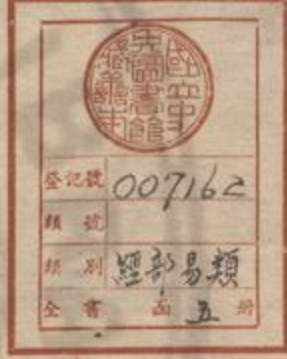 國立中
央圖書館
登記號 007162
類號
類別 經部易類
全書 函 五 冊